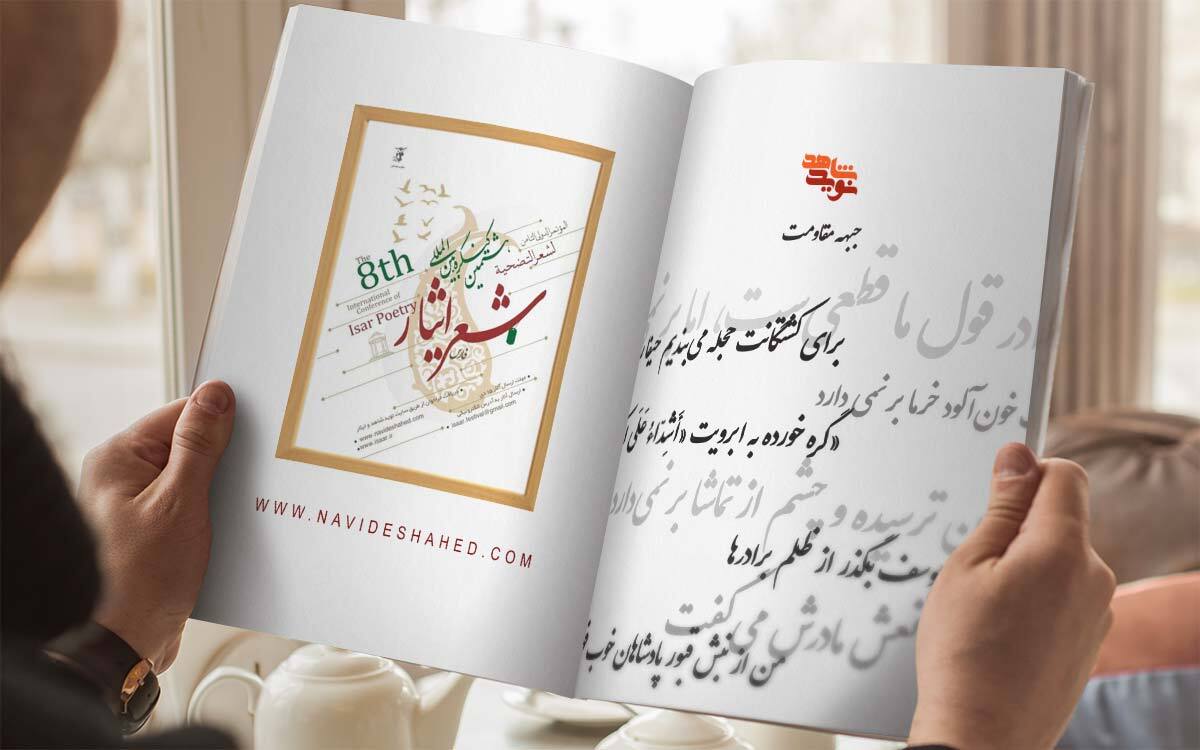 The
8th
International
Conference of
Isar Poetry
هشتمین کنگره بین المللی
شعر ایثار
فارسی
المؤتمر الدولي الثامن
لشعر التضحية
www.navideshahed.com
www.isaar.ir
isaar.festival@gmail.com
WWW.NAVIDESHAHED.COM
نوید شاهد
جبهه مقاومت
در قول ما قطعی ست، اما
برای کشتگانت حجله می‌بندیم
خون آلود خرما بر نمی دارد
«گره خورده به ابرویت «أَشِدّاءُ عَلَی
ترسیده و چشم از تماشا بر نمی دارد
بگذر از ظلم برادرها
مادرش می گفت
من از نبش قبور پادشاهان خوب